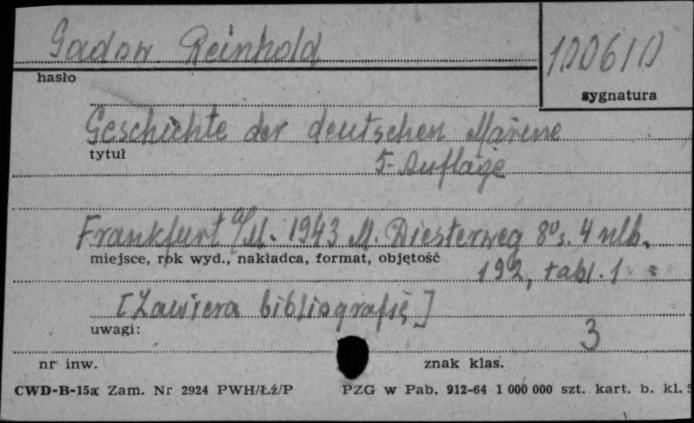 Gadow Reinhold
100610
hasło
sygnatura
Geschichte der deutschen Marine
tytuł
5. Auflage
Frankfurt a/M. 1943 M. Diesterweg 8° s. 4 nlb.
miejsce, rok wyd., nakładca, format, objętość
192, tabl. 1
[Zawiera bibliografię]
uwagi:
3
nr inw.
znak klas.
CWD-B-15a Zam. Nr 2924 PWH/Łź/P PZG w Pab. 912-64 1 000 000 szt. kart. b. kl. 5